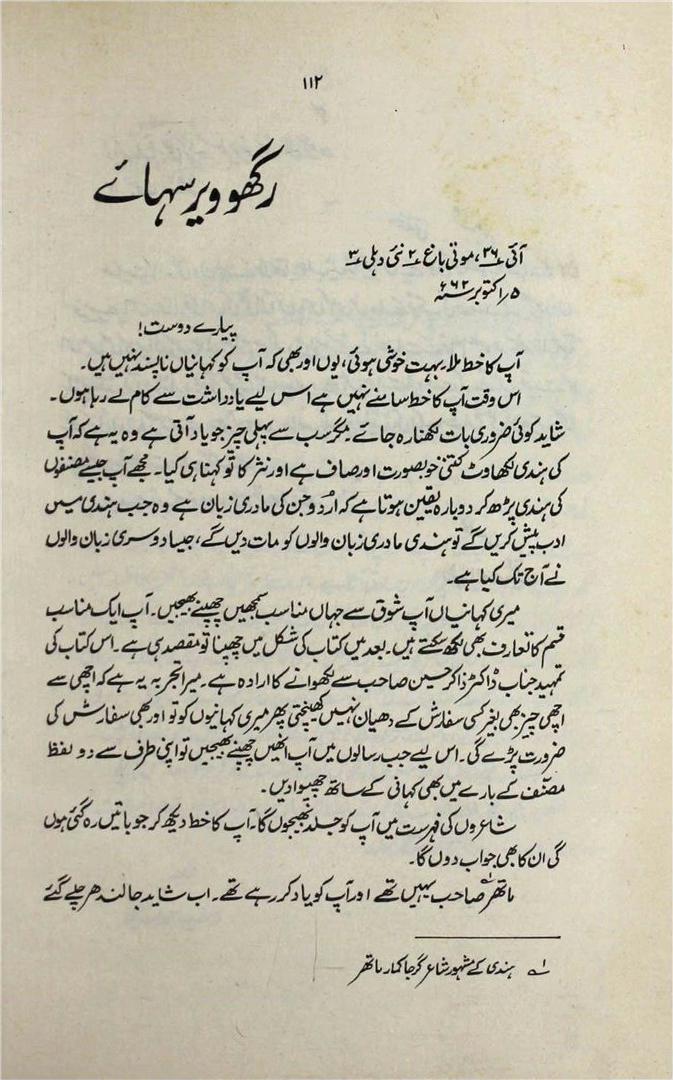 ۱۱۲
رگھوویر سہائے
آئی ۳۶، موتی باغ ۲ نئی دہلی ۳
۵/ اکتوبر ۶۶۲
پیارے دوست!
آپ کا خط ملا۔ بہت خوشی ہوئی، یوں اور بھی کہ آپ کو کہانیاں ناپسند نہیں ہیں۔
اس وقت آپ کا خط سامنے نہیں ہے اس لیے یادداشت سے کام لے رہا ہوں۔
شاید کوئی ضروری بات لکھنا رہ جائے مگر سب سے پہلی چیز جو یاد آتی ہے وہ یہ ہے کہ آپ
کی ہندی لکھاوٹ کتنی خوبصورت اور صاف ہے اور نثر کا تو کہنا ہی کیا۔ مجھے آپ جیسے مصنفوں
کی ہندی پڑھ کر دوبارہ یقین ہوتا ہے کہ اردو جن کی مادری زبان ہے وہ جب ہندی میں
ادب پیش کریں گے تو ہندی مادری زبان والوں کو مات دیں گے، جیسا دوسری زبان والوں
نے آج تک کیا ہے۔
میری کہانیاں آپ شوق سے جہاں مناسب سمجھیں چھپنے بھیجیں۔ آپ ایک مناسب
قسم کا تعارف بھی لکھ سکتے ہیں۔ بعد میں کتاب کی شکل میں چھپنا تو مقصد ہی ہے۔ اس کتاب کی
تمہید جناب ڈاکٹر ذاکر حسین صاحب سے لکھوانے کا ارادہ ہے۔ میرا تجربہ یہ ہے کہ اچھی سے
اچھی چیز بھی بغیر کسی سفارش کے دھیان نہیں کھینچتی پھر میری کہانیوں کو تو اور بھی سفارش کی
ضرورت پڑے گی۔ اس لیے جب رسالوں میں آپ انھیں چھپنے بھیجیں تو اپنی طرف سے دو لفظ
مصنّف کے بارے میں بھی کہانی کے ساتھ چھپوا دیں۔
شاعروں کی فہرست میں آپ کو جلد بھیجوں گا۔ آپ کا خط دیکھ کر جو باتیں رہ گئی ہوں
گی ان کا بھی جواب دوں گا۔
ماتھر۱ صاحب یہیں تھے اور آپ کو یاد کر رہے تھے۔ اب شاید جالندھر چلے گئے
۱ ہندی کے مشہور شاعر گرجا کمار ماتھر